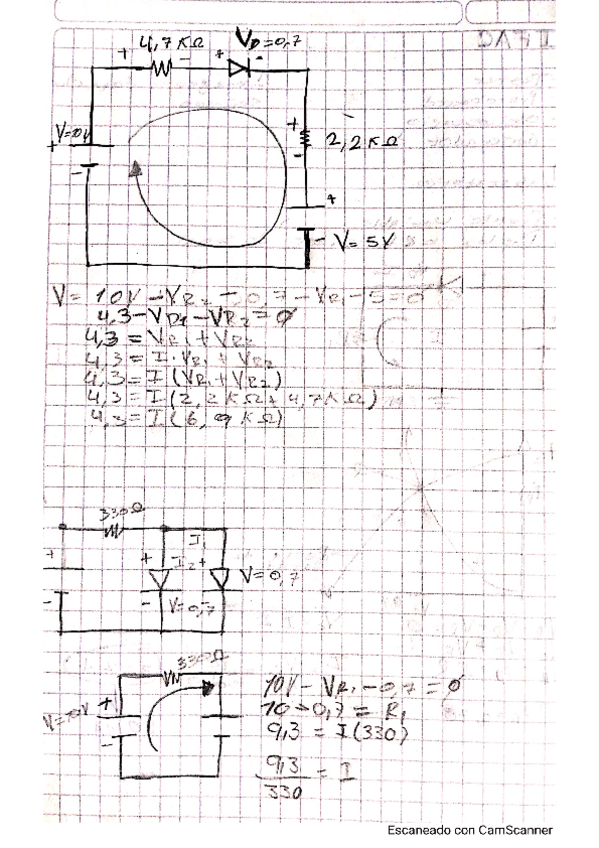 4,7 KΩ
VD=0,7
+ - + -
V=10V
+
-
+
2,2 KΩ
-
+
- V= 5V
V= 10V - VR2 - 0,7 - VR1 - 5 = 0
4,3 - VR1 - VR2 = 0
4,3 = VR1 + VR2
4,3 = I · VR1 + VR2
4,3 = I (VR1 + VR2)
4,3 = I (2,2 KΩ + 4,7 KΩ)
4,3 = I (6,9 KΩ)
330Ω
I1
+ + I2 +
V=0,7
- - V=0,7 -
330Ω
V=10V +
-
10V - VR1 - 0,7 = 0
10 - 0,7 = R1
9,3 = I (330)
9,3
330
= I
Escaneado con CamScanner